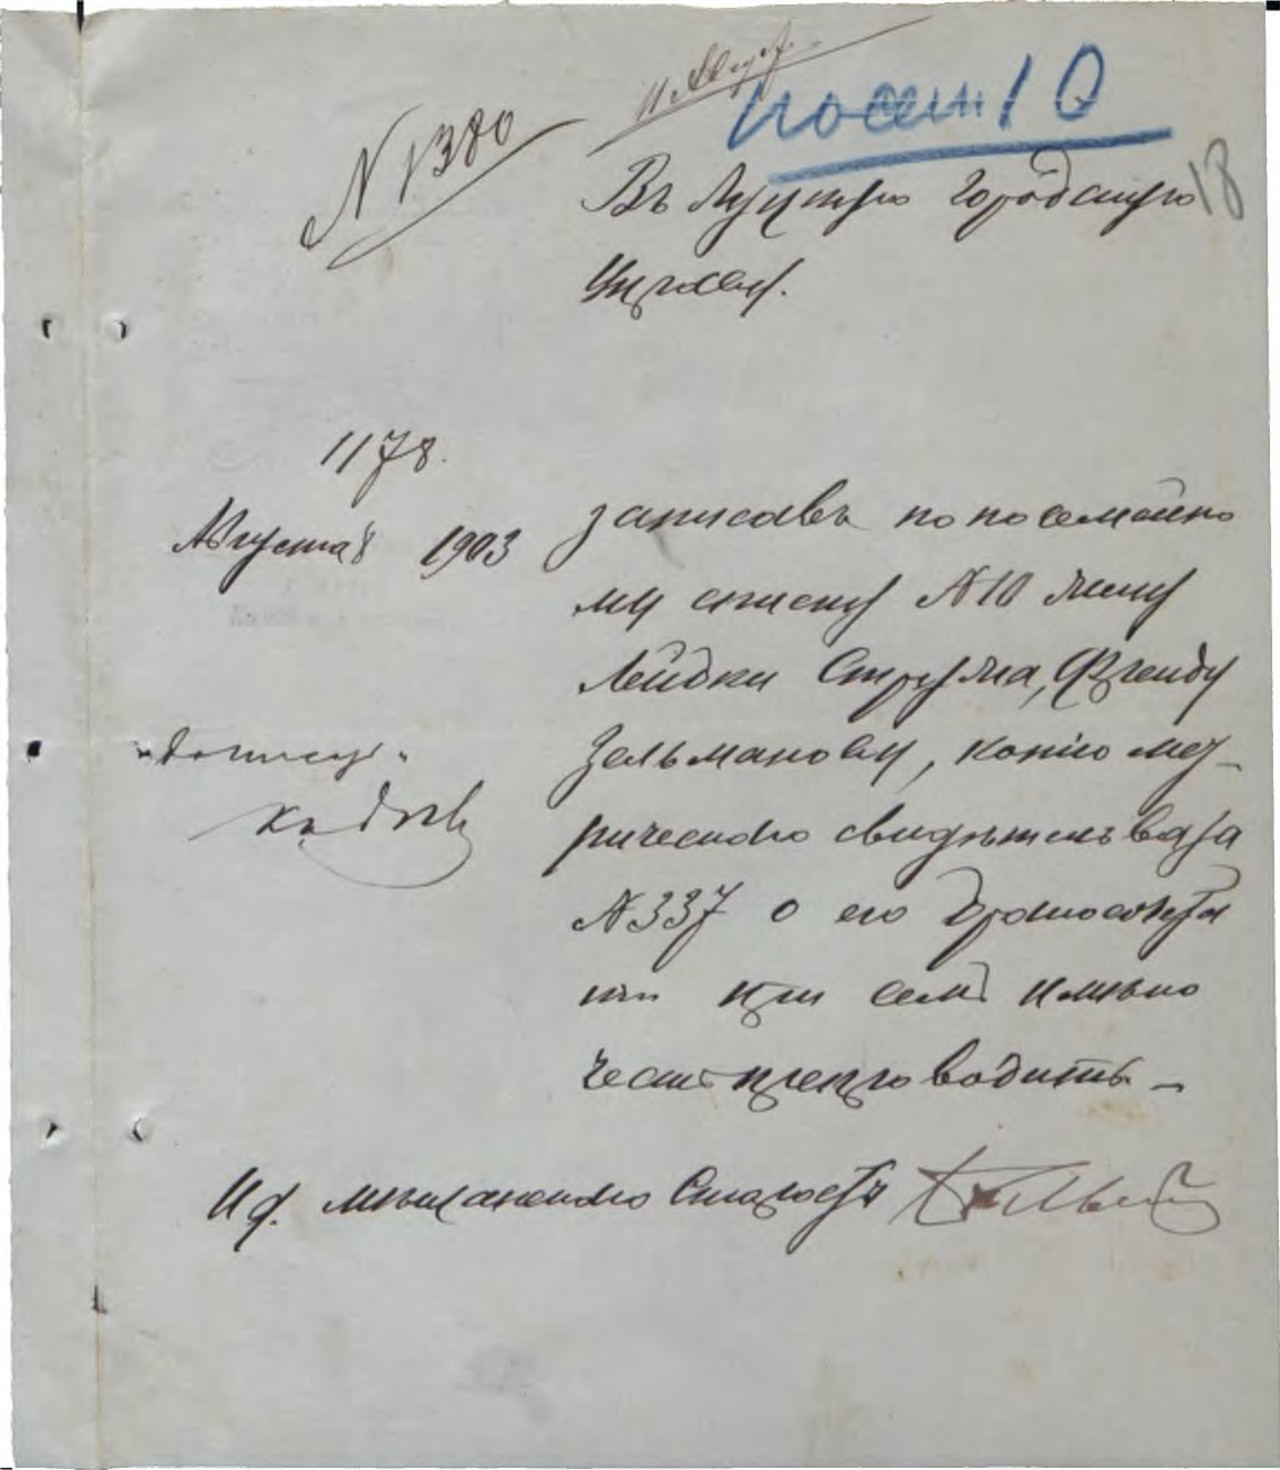 11 Авг.
посем 10
№ 1380
18
Въ Луцкую Городскую
Управу.
1178.
Августа 8 1903
записавъ по посемейно
му списку № 10 жену
Лейдки Струля, Фрейду
Зельманову, копію мет
рическаго свидѣтельства
№ 337 о его бракосочета
ніи при семъ имѣю
честь препроводить. —
И д. мѣщанскаго Старосты